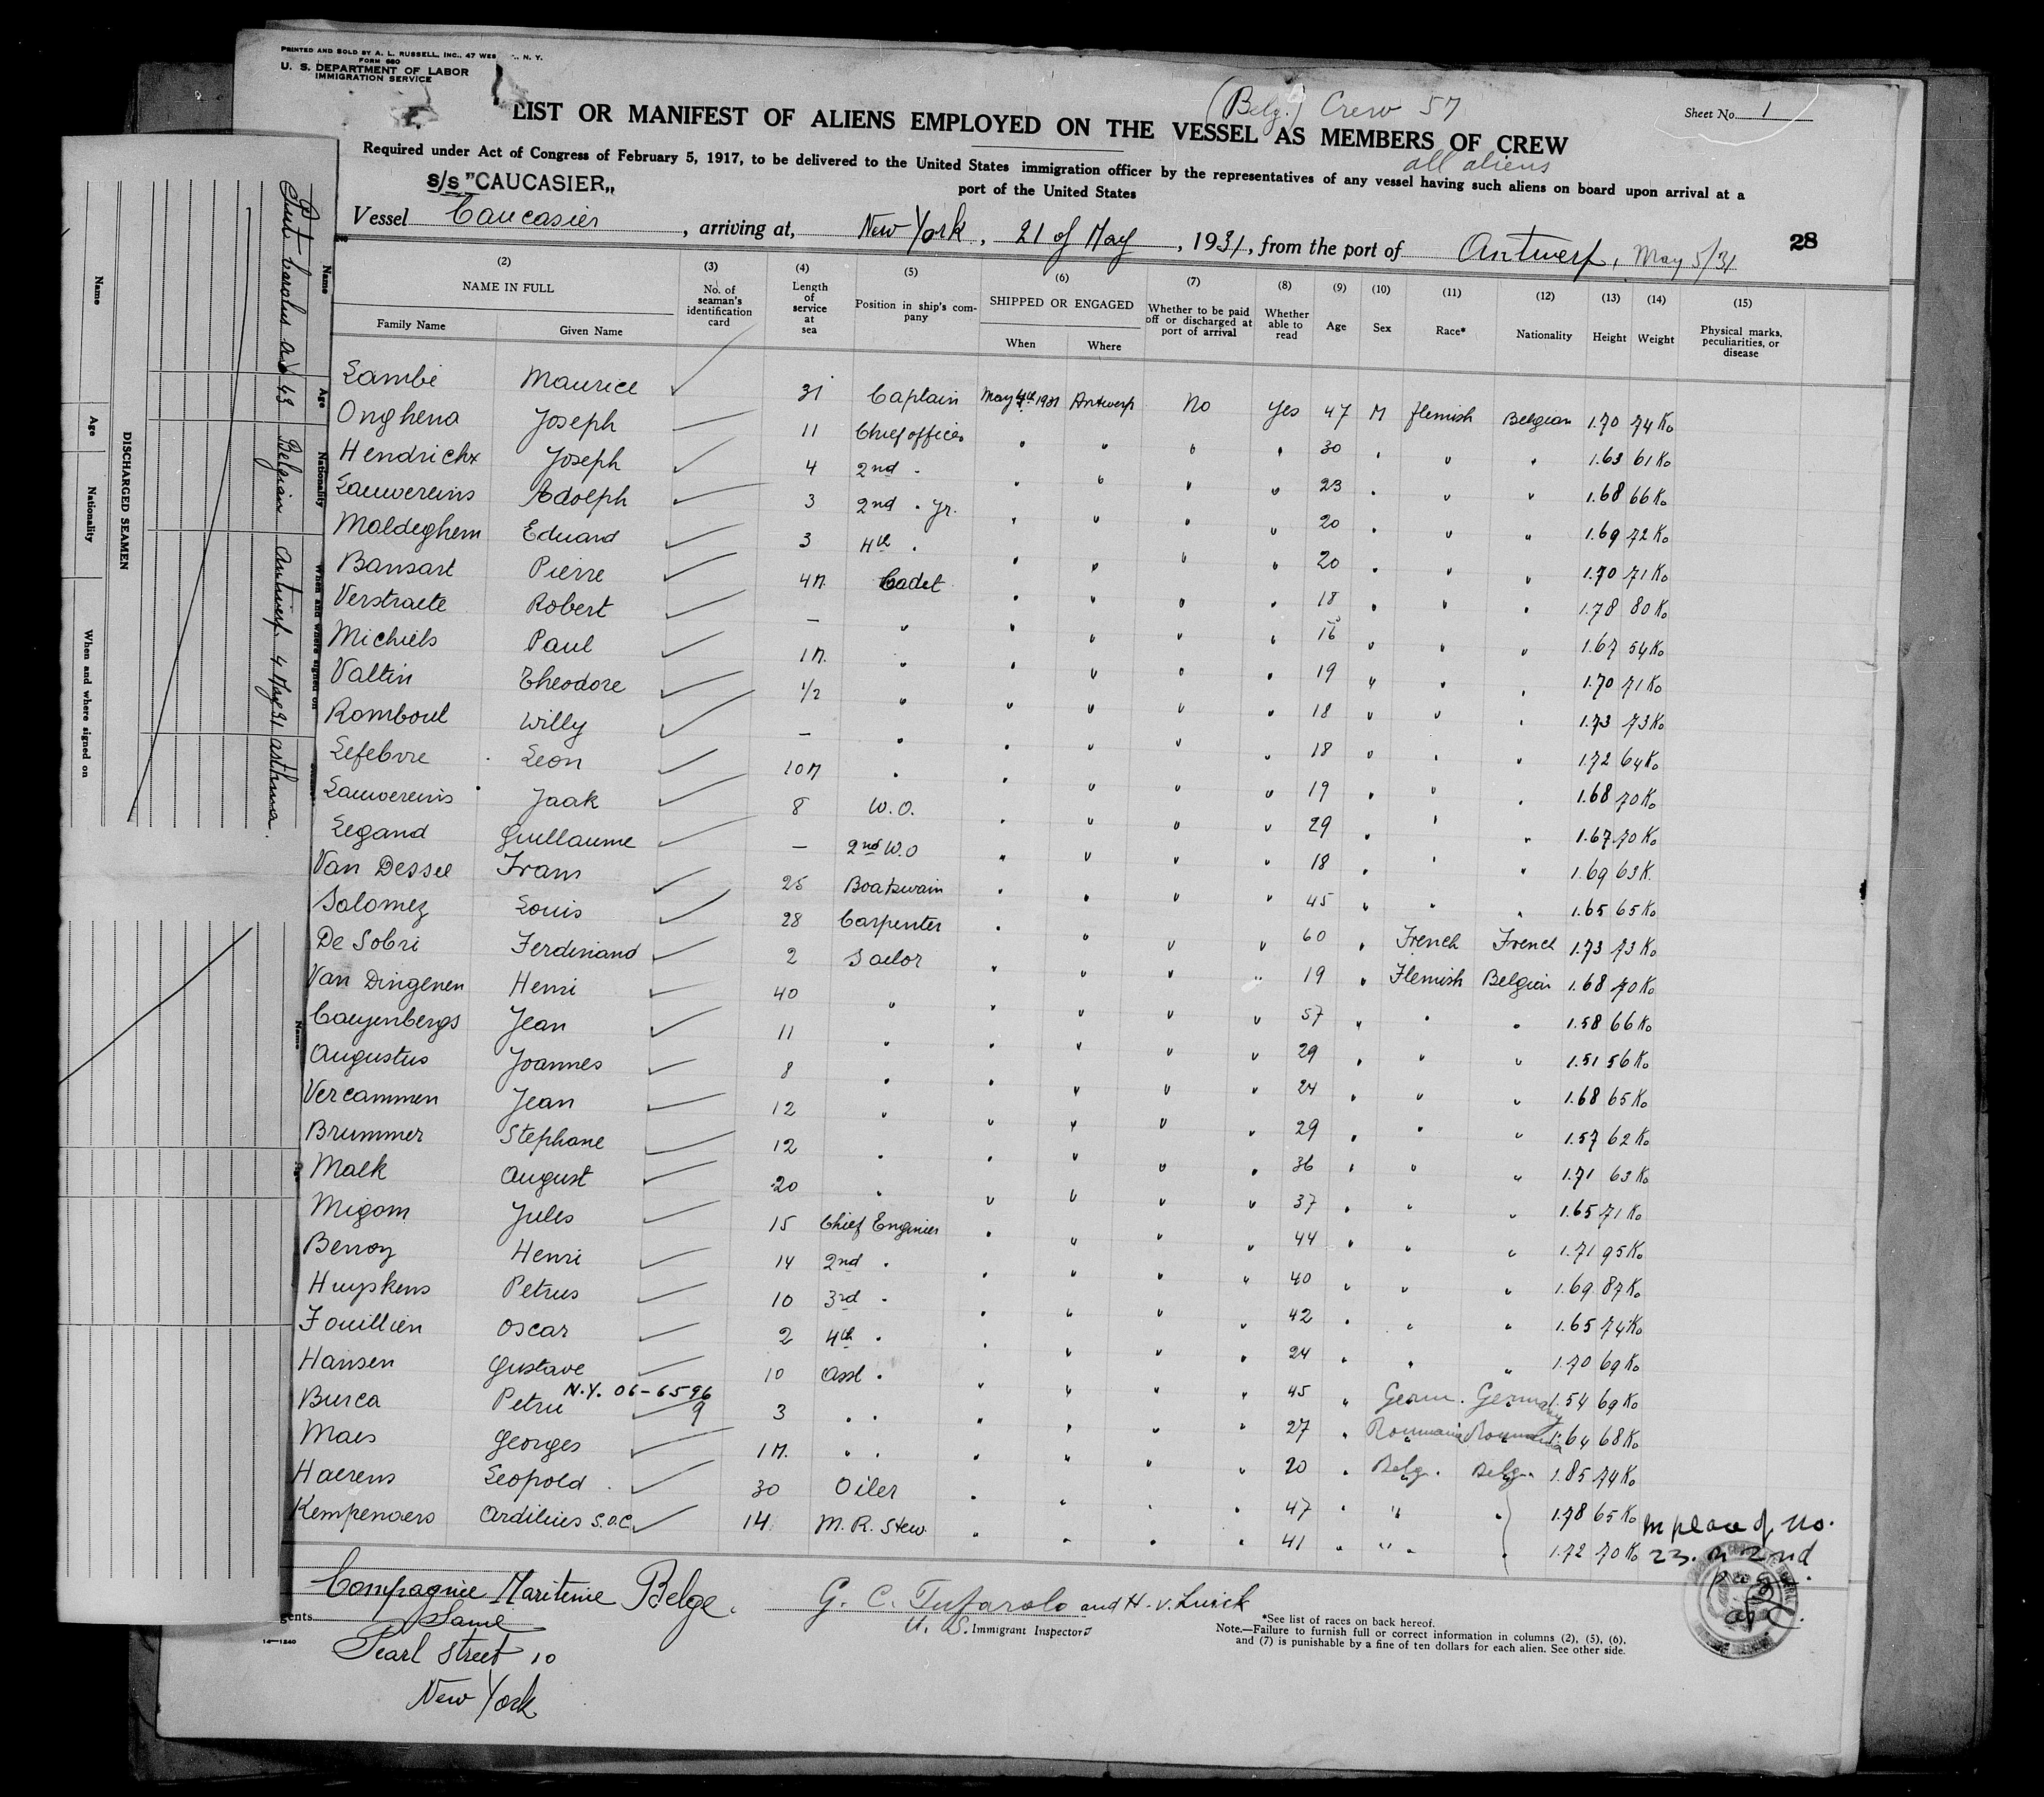 PRINTED AND SOLD BY A. L. RUSSELL, INC., 47 WES N. Y.
FORM 680
U. S. DEPARTMENT OF LABOR
IMMIGRATION SERVICE
(Belg.) Crew 57
Sheet No. 1
LIST OR MANIFEST OF ALIENS EMPLOYED ON THE VESSEL AS MEMBERS OF CREW
all aliens
Required under Act of Congress of February 5, 1917, to be delivered to the United States immigration officer by the representatives of any vessel having such aliens on board upon arrival at a
port of the United States
s/s "CAUCASIER„
Vessel Caucasier, arriving at, New York, 21 of May, 1931, from the port of Antwerp, May 5/31
28
(2) (3) (4) (5) (6) (7) (8) (9) (10) (11) (12) (13) (14) (15)
NAME IN FULL Family Name Given Name No. of seaman's identification card Length of service at sea Position in ship's company SHIPPED OR ENGAGED When Where Whether to be paid off or discharged at port of arrival Whether able to read Age Sex Race* Nationality Height Weight Physical marks, peculiarities, or disease
Lambé Maurice ✓ 31 Captain May 4th 1931 Antwerp No Yes 47 M Flemish Belgian 1.70 74 Ko
Onghena Joseph 11 Chief officer " " " " 30 " " " 1.63 61 Ko
Hendrickx Joseph 4 2nd " " " " " 23 " " " 1.68 66 Ko
Lauwereins Adolph 3 2nd " Jr. " " " " 20 " " " 1.69 72 Ko
Moldeghem Eduard 3 4th " " " " " 20 " " " 1.70 71 Ko
Bansart Pierre 4 M. Cadet " " " " 18 " " " 1.78 80 Ko
Verstraete Robert — " " " " " 16 " " " 1.67 54 Ko
Michiels Paul 1 M. " " " " " 19 " " " 1.70 71 Ko
Valtin Theodore 1/2 " " " " " 18 " " " 1.73 73 Ko
Rombout Willy — " " " " " 18 " " " 1.72 64 Ko
Lefebvre Leon 10 M " " " " " 19 " " " 1.68 70 Ko
Lauwereins Jaak 8 W.O. " " " " 29 " " " 1.67 70 Ko
Legand Guillaume — 2nd W.O " " " " 18 " " " 1.69 63 K.
Van Dessel Frans 25 Boatswain " " " " 45 " " " 1.65 65 Ko
Salomez Louis 28 Carpenter " " " " 60 " French French 1.73 73 Ko
De Sobri Ferdinand 2 Sailor " " " " 19 " Flemish Belgian 1.68 70 Ko
Van Dingenen Henri 40 " " " " " 57 " " " 1.58 66 Ko
Caeyenbergs Jean 11 " " " " " 29 " " " 1.51 56 Ko
Augustus Joannes 8 " " " " " 24 " " " 1.68 65 Ko
Vercammen Jean 12 " " " " " 29 " " " 1.57 62 Ko
Brummer Stephane 12 " " " " " 36 " " " 1.71 63 Ko
Malk August 20 " " " " " 37 " " " 1.65 71 Ko
Migom Jules 15 Chief Enginier " " " " 44 " " " 1.71 95 Ko
Benoy Henri 14 2nd " " " " " 40 " " " 1.69 87 Ko
Huyskens Petrus 10 3rd " " " " " 42 " " " 1.65 74 Ko
Fouillien Oscar 2 4th " " " " " 24 " " " 1.70 69 Ko
Hansen Gustave 10 Asst " " " " " 45 " Germ. Germany 1.54 69 Ko
N.Y. 06-6596
Burca Petru 9 3 " " " " " " 27 " Roumania Roumania 1.64 68 Ko
Maes Georges 1 M. " " " " " " 20 " Belg. Belg. 1.85 74 Ko
Haerens Leopold 30 Oiler " " " " 47 " " " 1.78 65 Ko
Kempenaers Ardilius S.O.C. 14 M. R. Stew. " " " " 41 " " " 1.72 70 Ko
In place of No.
23. on 2nd
Compagnie Maritime Belge.
gents Same
Pearl Street 10
New York
G. C. Tufarolo and H. v. Luick
U. S. Immigrant Inspectors
*See list of races on back hereof.
Note.—Failure to furnish full or correct information in columns (2), (5), (6),
and (7) is punishable by a fine of ten dollars for each alien. See other side.
14—1240
DISCHARGED SEAMEN
Name Age Nationality When and where signed on
Name Age Nationality When and where signed on
Put Carolus 43 Belgian Antwerp 4 May 31 asthma.
Name